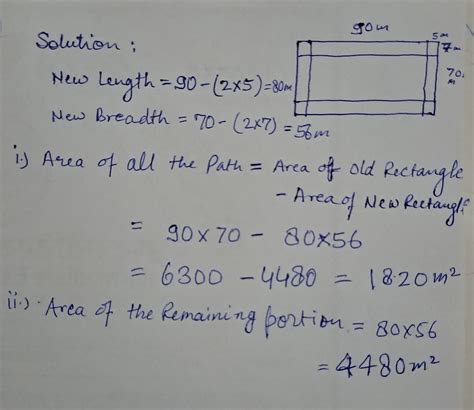 Solution :
90m
5m
7m
70m
New Length = 90 - (2x5) = 80m
New Breadth = 70 - (2x7) = 56m
i.) Area of all the Path = Area of Old Rectangle
- Area of New Rectangle
= 90 x 70 - 80x56
= 6300 - 4480 = 1820 m²
ii.) Area of the Remaining portion = 80x56
= 4480m²